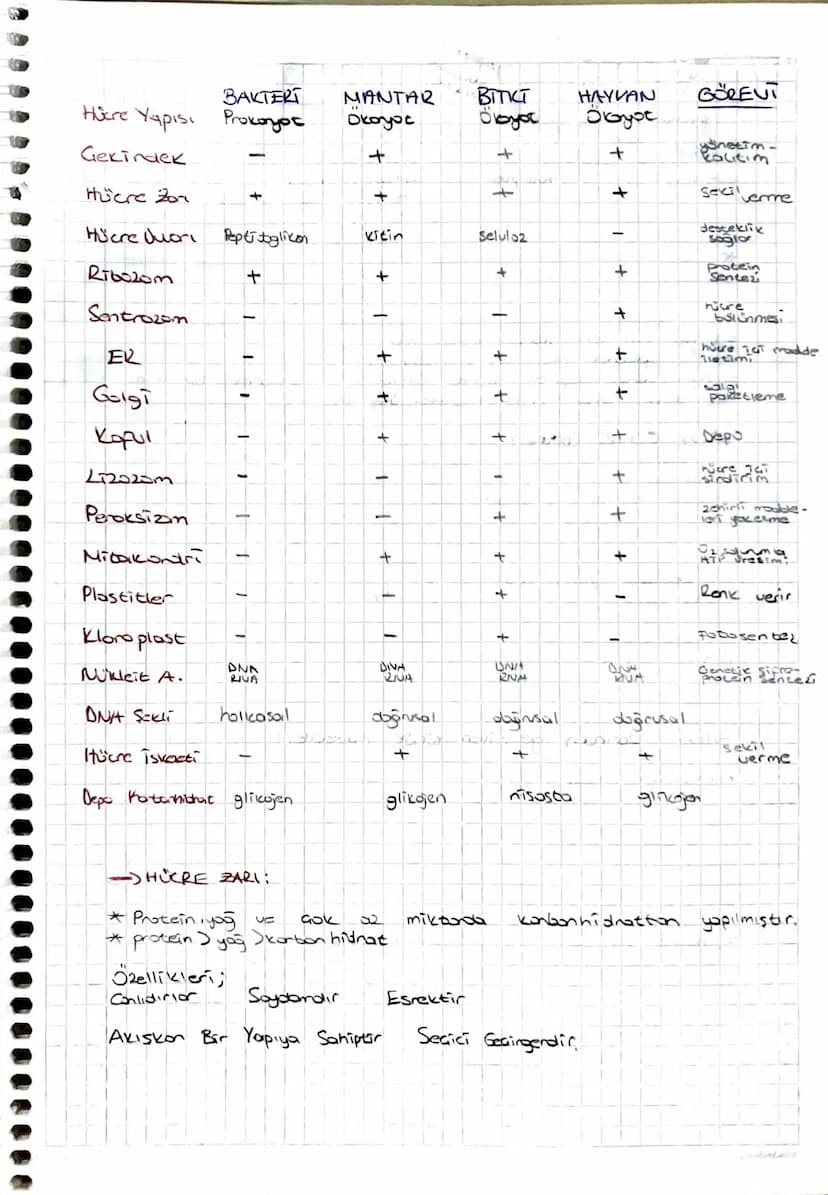 BAKTERİ MANTAR BİTKİ HAYVAN GÖREVİ
Hücre Yapısı Prokaryot Ökaryot Ökaryot Ökaryot
Çekirdek - + + + yönetim-kalıtım
Hücre Zarı + + + + şekil verme
Hücre Duvarı Peptidoglikan kitin selüloz - desteklik sağlar
Ribozom + + + + protein sentezi
Sentrozom - - - + hücre bölünmesi
ER - + + + hücre içi madde iletimi
Golgi - + + + salgı paketleme
Koful - + + + Depo
Lizozom - - - + hücre içi sindirim
Peroksizom - - + + zehirli madde-leri yoketme
Mitokondri - + + + O2 solunumla ATP üretimi
Plastitler - - + - Renk verir
Kloroplast - - + - Fotosentez
Nükleit A. DNA RNA DNA RNA DNA RNA DNA RNA Genetik şifre-protein sentezi
DNA Şekli halkasal doğrusal doğrusal doğrusal
Hücre iskeleti - + + + şekil verme
Depo Karbonhidrat glikojen glikojen nişasta glikojen
→ HÜCRE ZARI:
* Protein, yağ ve çok az miktarda karbonhidrattan yapılmıştır.
* protein > yağ > karbonhidrat
Özellikleri;
Canlıdırlar Saydamdır Esnektir
Akışkan Bir Yapıya Sahiptir Seçici Geçirgendir.